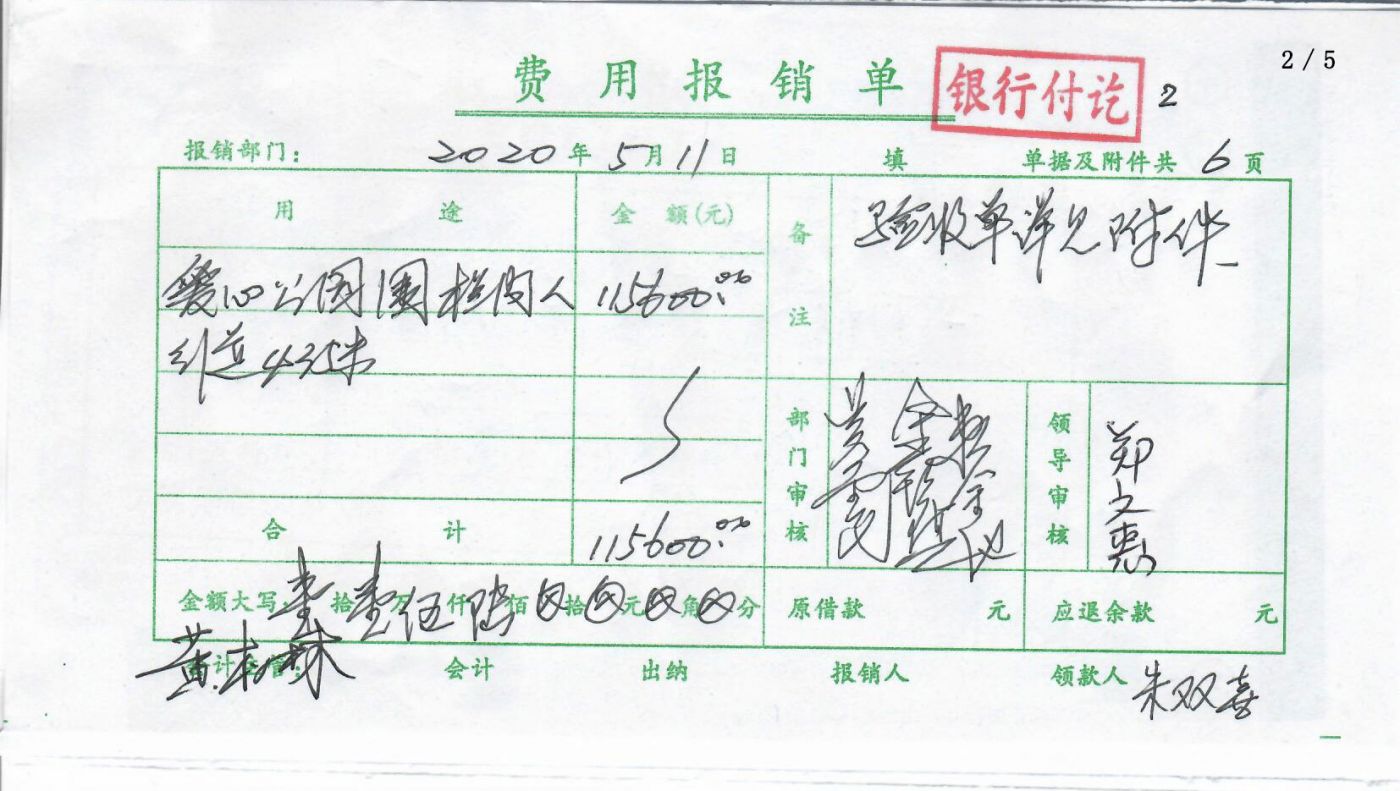 2 / 5
费用报销单
银行付讫
2
报销部门： 2020年5月11日 填 单据及附件共6页
用途 金额(元) 备注 验收单详见附件
爱心公园围栏内人 115600.00
引道4元米
部门审核 领导审核 郑文惠
合计 115600.00
金额大写 壹拾壹万伍仟陆佰⊗拾⊗元⊗角⊗分 原借款 元 应退余款 元
会计 出纳 报销人 领款人 朱双喜